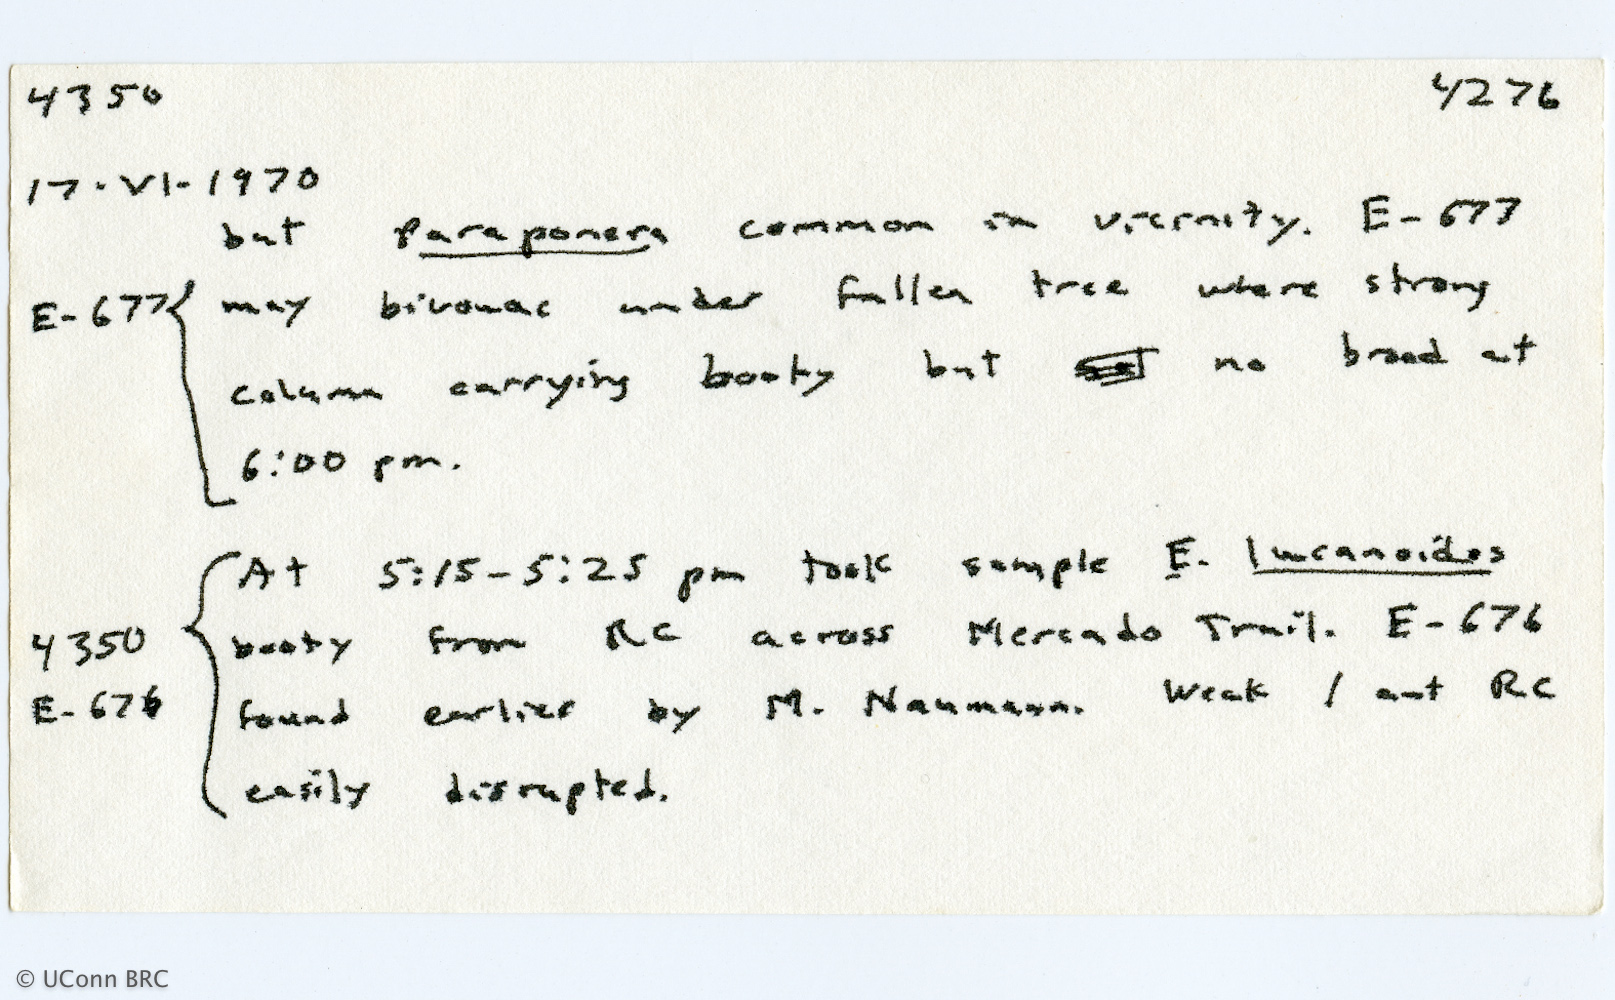 4350 4276
17-VI-1970
but Paraponera common in vicinity. E-677
E-677 { may bivouac under fallen tree where strong
column carrying booty but no brood at
6:00 pm.
At 5:15-5:25 pm took sample E. lucanoides
4350 { booty from RC across Mercado Trail. E-676
E-676 found earlier by M. Naumann. Weak 1 ant RC
easily disrupted.
© UConn BRC